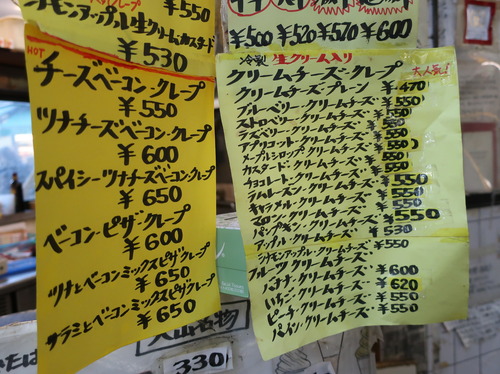 ¥550
シナモンアップル生クリームカスタード
¥530
HOT
チーズベーコン・クレープ
¥550
ツナチーズベーコン・クレープ
¥600
スパイシーツナチーズベーコン・クレープ
¥650
ベーコン・ピザ・クレープ
¥600
ツナとベーコンミックスピザクレープ
¥650
サラミとベーコンミックスピザクレープ
¥650
¥500 ¥520 ¥570 ¥600
冷製 生クリーム入り
クリームチーズ・クレープ
大人気!
クリームチーズ・プレーン ¥470
ブルーベリー・クリームチーズ ¥550
ストロベリー・クリームチーズ ¥550
ラズベリー・クリームチーズ ¥550
アプリコット・クリームチーズ ¥550
メープルシロップ・クリームチーズ ¥550
カスタード・クリームチーズ ¥550
チョコレート・クリームチーズ ¥550
ラムレーズン・クリームチーズ ¥550
キャラメル・クリームチーズ ¥550
マロン・クリームチーズ ¥550
パンプキン・クリームチーズ ¥550
アップル・クリームチーズ ¥530
シナモンアップル・クリームチーズ ¥550
フルーツ・クリームチーズ ¥600
バナナ・クリームチーズ ¥620
いちご・クリームチーズ ¥550
ピーチ・クリームチーズ ¥550
パイン・クリームチーズ
大山名物
330